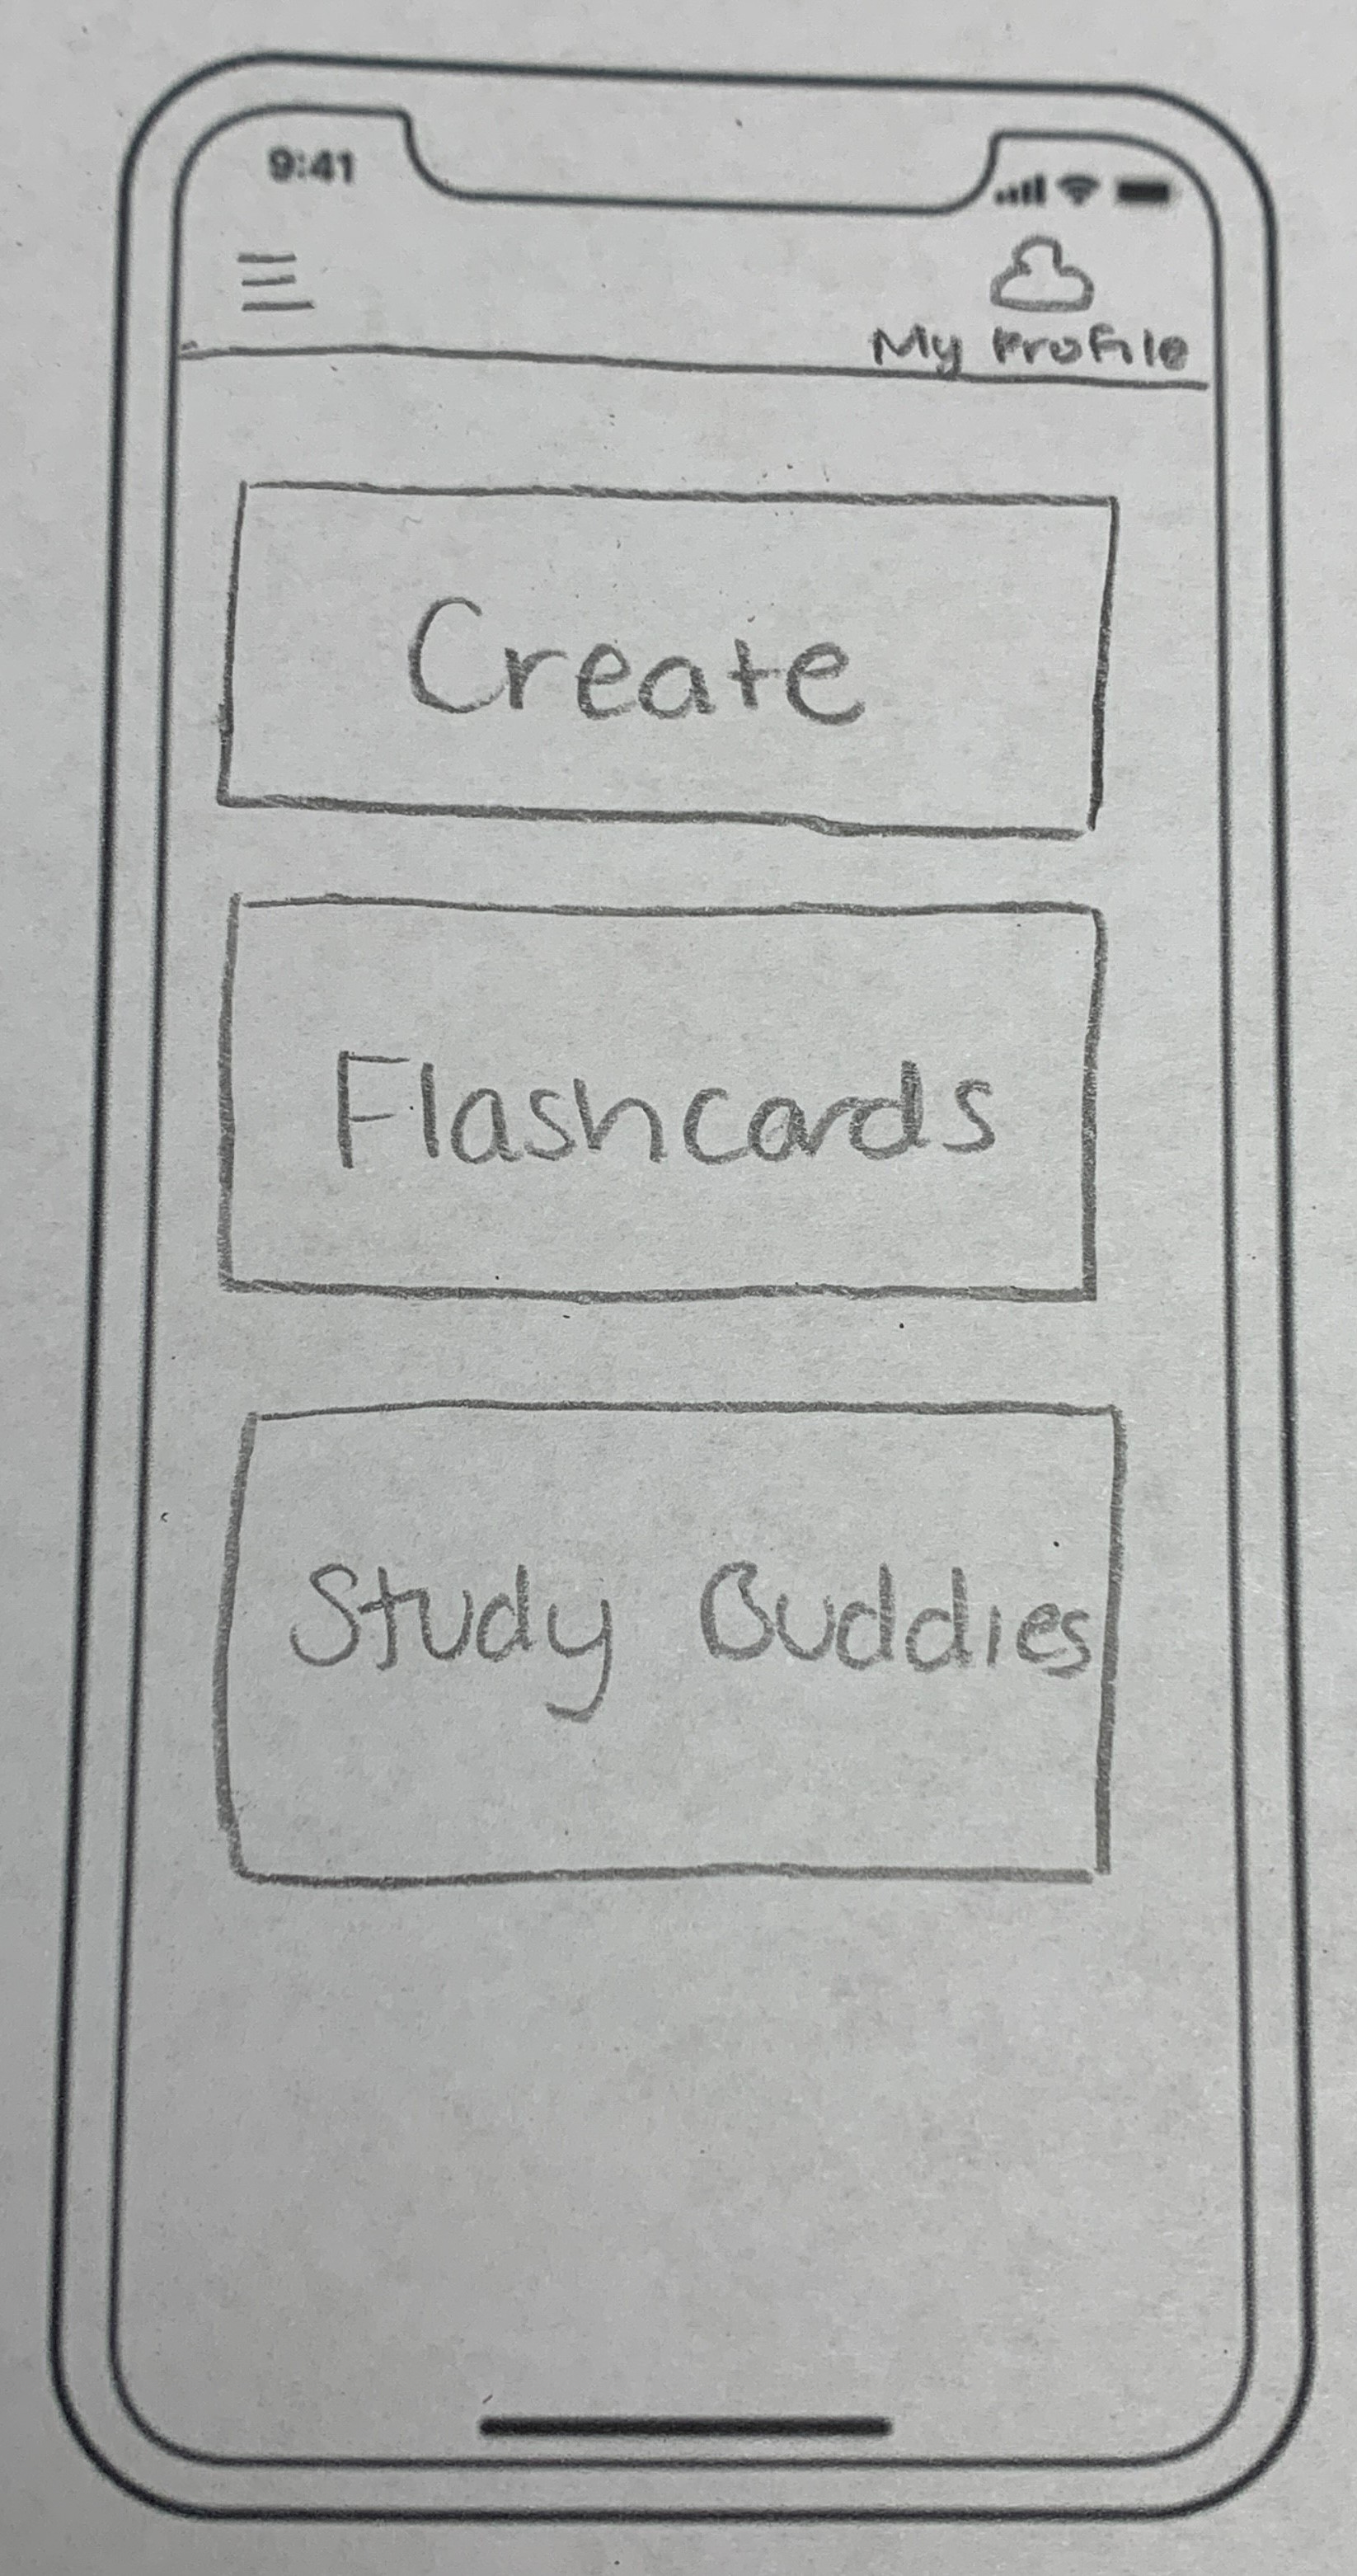 9:41
My Profile
Create
Flashcards
Study Buddies